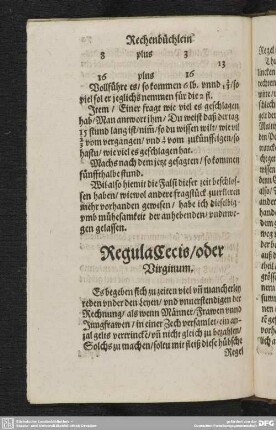 Rechenbüchlein
8 plus 3
13
16 plus 16
Vollführe es/ so kommen 6 lb. vnnd /so
viel sol er jeglichs nemmen für die 2 fl.
Item/ Einer fragt wie viel es geschlagen
hab/Man antwort ihm/ Du weist daß der tag
15 stund lang ist/ / so du wissen wilt/ wie vil
vom vergangen/ vnd vom zukünfftigen/so
hastu/ wie viel es geschlagen hat.
Machs nach dem jetz gesagten/ so kommen
fünffthalbe stund.
Wil also hiemit die Falsi dieser zeit beschlos-
sen haben/ wiewol andere fragstück zuerklären
mehr vorhanden gewesen/ habe ich dieselbig
vmb mühesamkeit der anhebenden/
gen gelassen.
Regula Cecis/oder
Virginum.
Es begeben sich zu zeiten viel vñ mancherley
reden vnder den Leyen/ vnd vnuerstendigen der
Rechnung/ als wenn Männer/Frawen vnnd
Jungfrawen/ in einer Zech versamlet/ ein an-
zal gelts verrinckē/ vñ nicht gleich zu bezahlen/
Solchs zu machen/ soltu mit fleiß diese hübsche
Regel